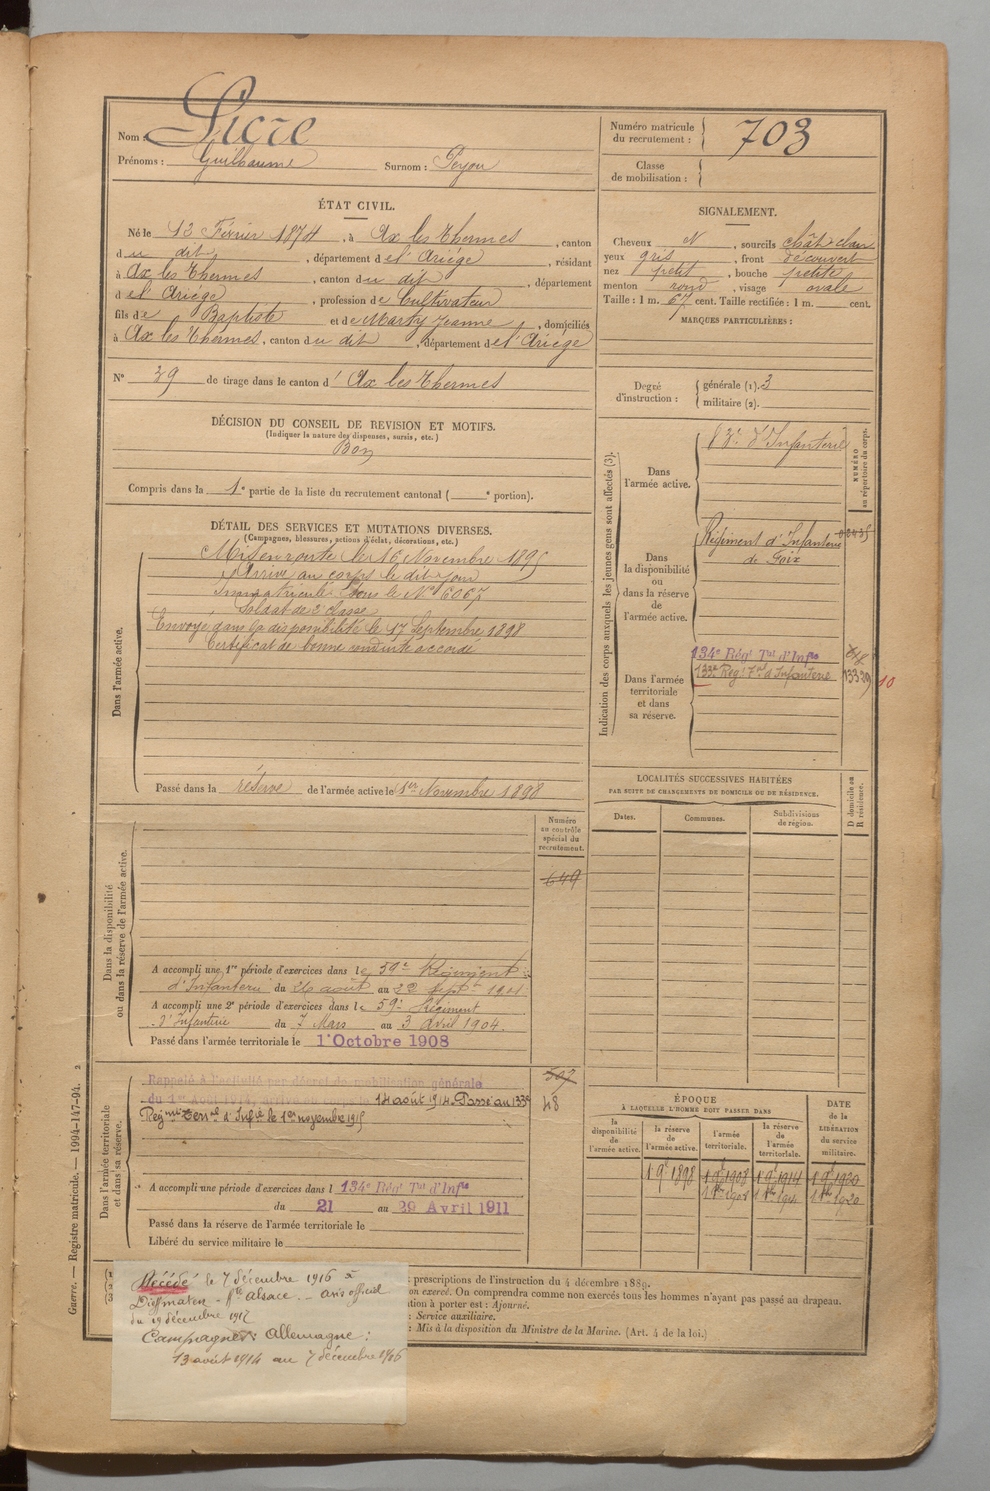 Nom : Sicre
Prénoms : Guilhaume Surnom : Peyou
Numéro matricule du recrutement : 703
Classe de mobilisation :
ÉTAT CIVIL.
Né le 13 Février 1874, à Ax les Thermes, canton
du dit, département de l'Ariège, résidant
à Ax les Thermes, canton du dit, département
de l'Ariège, profession de Cultivateur
fils de Baptiste et de Marty Jeanne, domiciliés
à Ax les Thermes, canton du dit, département de l'Ariège
N° 39 de tirage dans le canton d' Ax les Thermes
DÉCISION DU CONSEIL DE REVISION ET MOTIFS.
(Indiquer la nature des dispenses, sursis, etc.)
Bon
Compris dans la 1e partie de la liste du recrutement cantonal ( e portion).
SIGNALEMENT.
Cheveux N, sourcils chât clair
yeux gris, front découvert
nez petit, bouche petite
menton rond, visage ovale
Taille : 1 m. 67 cent. Taille rectifiée : 1 m. cent.
MARQUES PARTICULIÈRES :
Degré d'instruction : générale (1). 3
militaire (2).
DÉTAIL DES SERVICES ET MUTATIONS DIVERSES.
(Campagnes, blessures, actions d'éclat, décorations, etc.)
Dans l'armée active.
Mis en route le 16 Novembre 1895
Arrivé au corps le dit jour
Immatriculé sous le N° 6067
Soldat de 2e classe
Envoyé dans la disponibilité le 17 Septembre 1898
Certificat de bonne conduite accordé
Passé dans la réserve de l'armée active le 1er Novembre 1898
Indication des corps auxquels les jeunes gens sont affectés (3).
NUMÉRO au répertoire du corps.
Dans l'armée active.
83e d'Infanterie
Dans la disponibilité ou dans la réserve de l'armée active.
Régiment d'Infanterie
de Foix
Dans l'armée territoriale et dans sa réserve.
134e Régt Tal d'Infie
133e Regt Tal d'Infanterie 13339 10
LOCALITÉS SUCCESSIVES HABITÉES
PAR SUITE DE CHANGEMENTS DE DOMICILE OU DE RÉSIDENCE.
Dates. Communes. Subdivisions de région. D domicile ou R résidence.
Dans la disponibilité ou dans la réserve de l'armée active.
Numéro au contrôle spécial du recrutement.
649
A accompli une 1re période d'exercices dans le 59e Régiment
d'Infanterie du 26 août au 22 septe 1901
A accompli une 2e période d'exercices dans le 59e Régiment
d'Infanterie du 7 Mars au 3 Avril 1904.
Passé dans l'armée territoriale le 1er Octobre 1908
Dans l'armée territoriale et dans sa réserve.
Rappelé à l'activité par décret de mobilisation générale
du 1er Août 1914, arrivé au corps le 14 août 1914. Passé au 133e
Régmt Terral d'Infie le 1er novembre 1915
48
A accompli une période d'exercices dans l 134e Régt Tal d'Infie
du 21 au 29 Avril 1911
Passé dans la réserve de l'armée territoriale le
Libéré du service militaire le
ÉPOQUE
À LAQUELLE L'HOMME DOIT PASSER DANS
la disponibilité de l'armée active. la réserve de l'armée active. l'armée territoriale. la réserve de l'armée territoriale.
DATE de la LIBÉRATION du service militaire.
1 9e 1898 1 9e 1908 1 9e 1914 1 9e 1920
prescriptions de l'instruction du 4 décembre 1889.
on exercé. On comprendra comme non exercés tous les hommes n'ayant pas passé au drapeau.
tion à porter est : Ajourné.
: Service auxiliaire.
: Mis à la disposition du Ministre de la Marine. (Art. 4 de la loi.)
Décédé le 7 décembre 1916 à
Dieffmaten - Hte Alsace. - avis officiel
du 19 décembre 1917
Campagnes : Allemagne :
13 août 1914 au 7 décembre 1916
Guerre. — Registre matricule. — 1994-147-94. 2